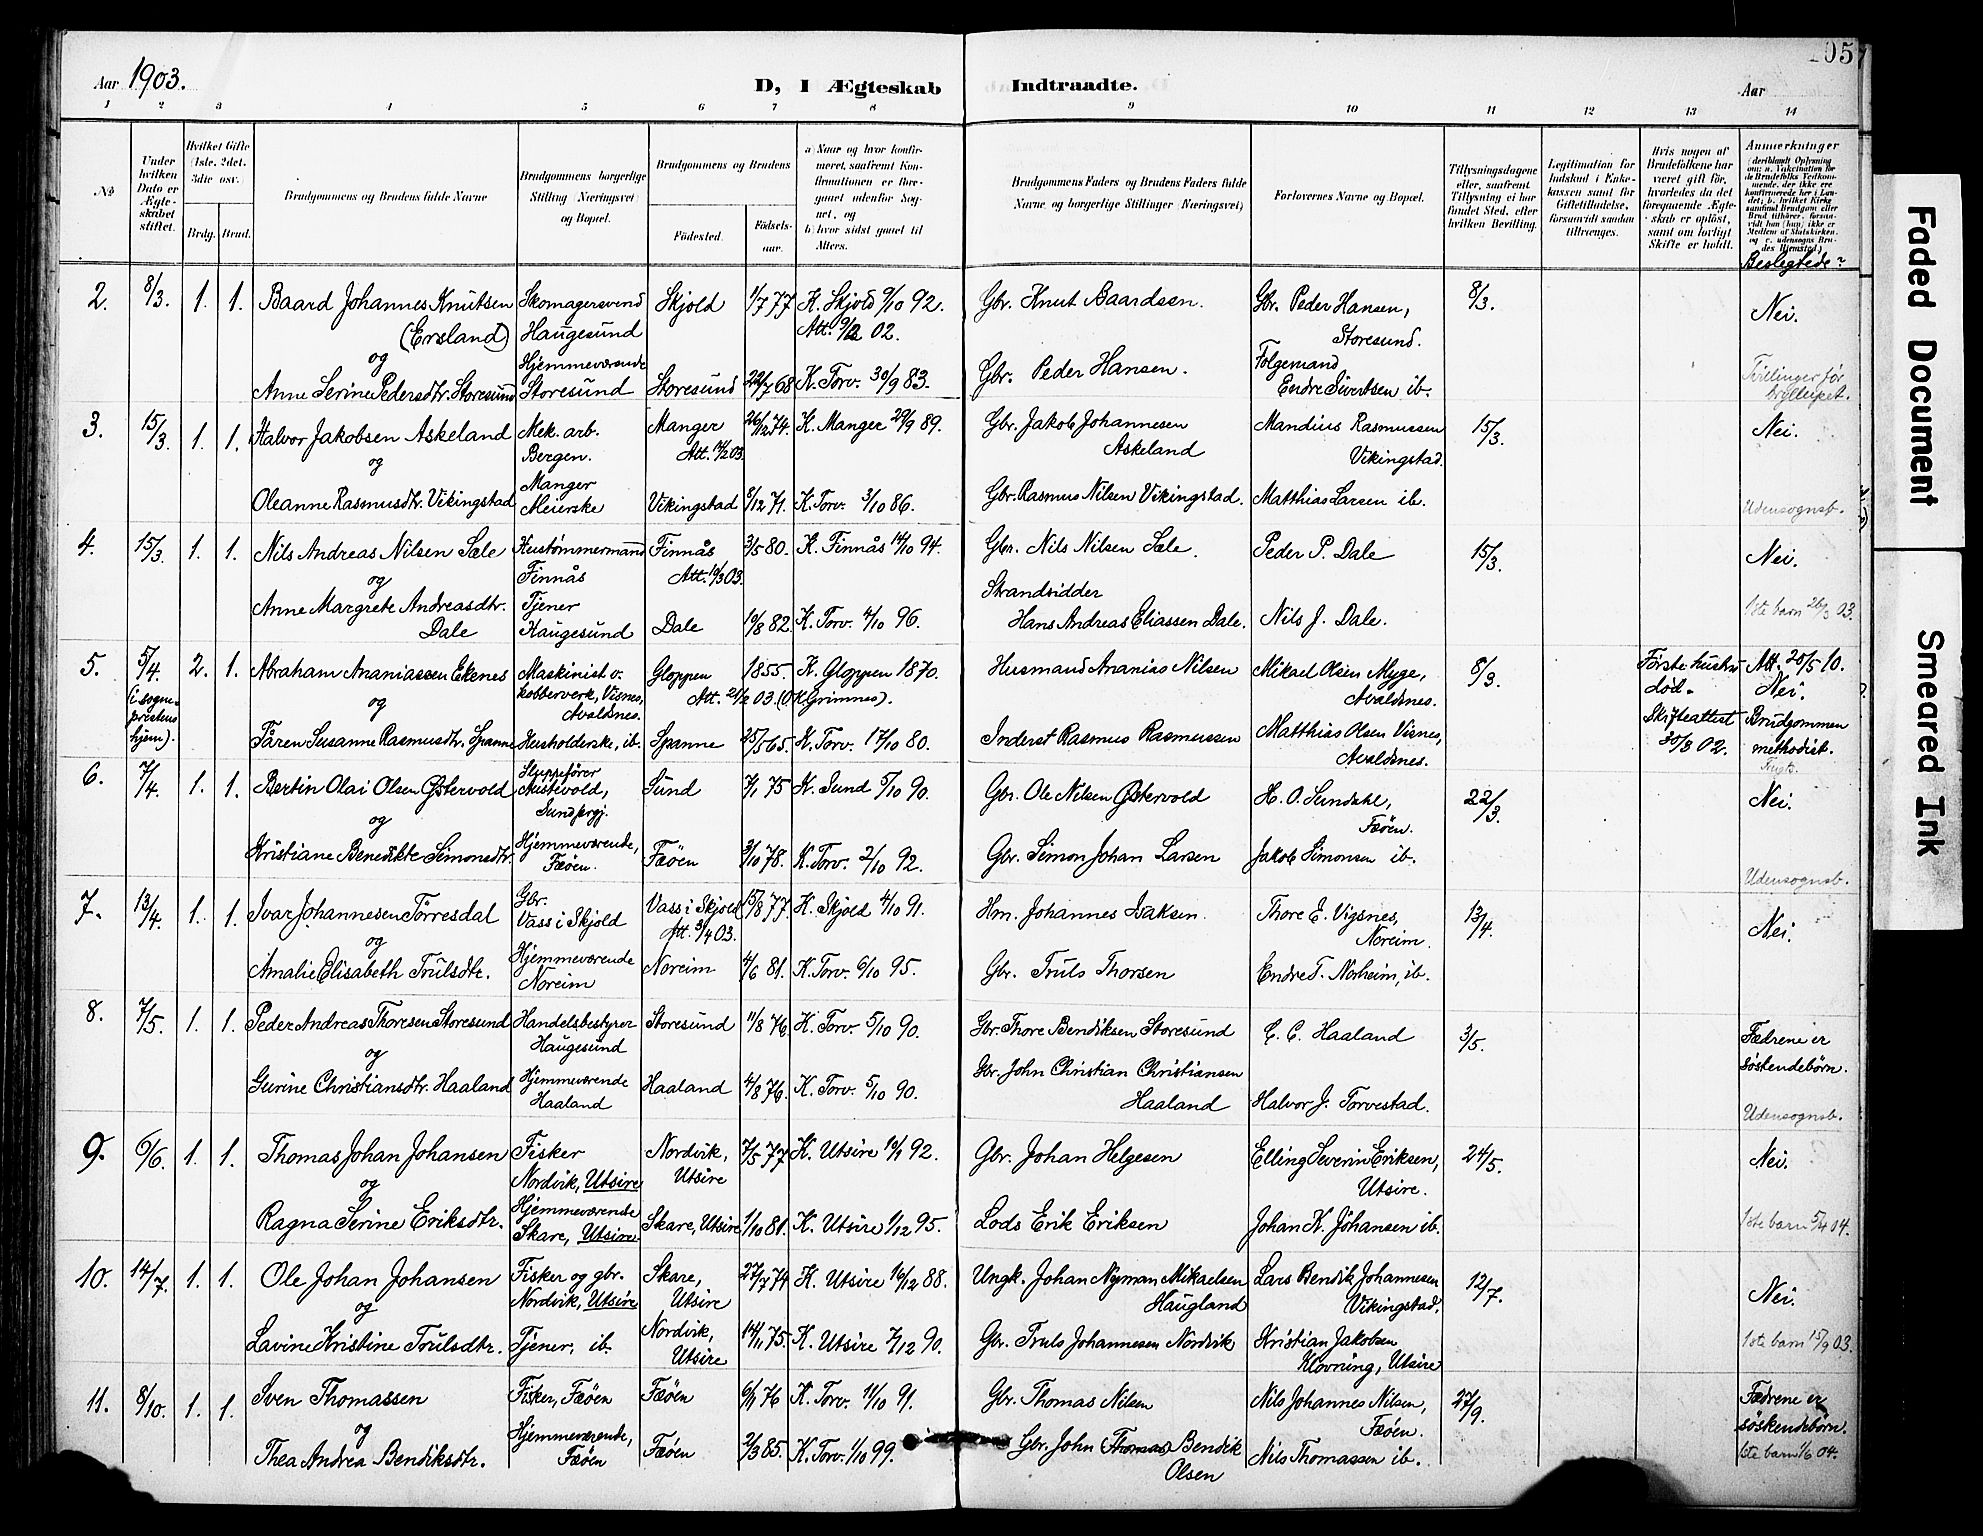 105
Aar 1903.
D, I Ægteskab Indtraadte.
Aar
1 2 3 4 5 6 7 8 9 10 11 12 13 14
No
Under hvilken Dato er Ægteskabet stiftet.
Hvilket Gifte (1ste, 2det, 3die osv.)
Brdg. Brud.
Brudgommens og Brudens fulde Navne
Brudgommens borgerlige Stilling (Næringsvei) og Bopæl.
Brudgommens og Brudens
Fødested. Fødselsaar.
a) Naar og hvor konfirmeret, saafremt Konfirmationen er foregaaet udenfor Sognet, og
b) hvor sidst gaaet til Alters.
Brudgommens Faders og Brudens Faders fulde Navne og borgerlige Stillinger (Næringsvei)
Forlovernes Navne og Bopæl.
Tillysningsdagene eller, saafremt Tillysning ei har fundet Sted, efter hvilken Bevilling.
Legitimation for Indskud i Enkekassen samt for Giftetilladelse, forsaavidt saadan tiltrænges.
Hvis nogen af Brudefolkene har været gift før, hvorledes da det foregaaende Ægteskab er opløst, samt om lovligt Skifte er holdt.
Anmærkninger
Beslegtede?
2. 8/3. 1. 1. Baard Johannes Knutsen Skomagersvend Skjold 1/7 77 K. Skjold 9/10 92. Gbr. Knut Baardsen. Gbr. Peder Hansen, 8/3. Nei.
(Ersland) Haugesund Att. 9/2 02. Storesund.
og Hjemmeværende Folgemand Tvillinger før
Anne Serine Pedersdtr. Storesund Storesund Storesund 22/7 68 K. Torv. 30/9 83. Gbr. Peder Hansen. Endre Sivertsen ib. bryllupet.
3. 15/3. 1. 1. Halvor Jakobsen Askeland Mek. arb. Manger 26/12 74. K. Manger 29/9 89. Gbr. Jakob Johannesen Mandius Rasmussen 15/3. Nei.
og Bergen. Att. 14/2 03. Askeland Vikingstad.
Manger
Oleanne Rasmusdtr. Vikingstad Meierske Vikingstad 8/12 71. K. Torv. 3/10 86. Gbr. Rasmus Nilsen Vikingstad. Matthias Larsen ib. Udensognsb.
4. 15/3. 1. 1. Nils Andreas Nilsen Sæle Hustømmermand Finnås 3/5 80. K. Finnås 14/10 94. Gbr. Nils Nilsen Sæle. Peder P. Dale 15/3. Nei.
og Finnås Att. 10/3 03. Strandsidder
Anne Margrete Andreasdtr. Tjener
Dale Haugesund Dale 19/8 82. K. Torv. 4/10 96. Hans Andreas Eliassen Dale. Nils J. Dale. 1ste barn 26/3 03.
5. 5/4. 2. 1. Abraham Ananiassen Ekenes Maskinist v. Gloppen 1855. K. Gloppen 1870. Husmand Ananias Nilsen Mikael Olsen Myge, 8/3. Første hustru Att. 20/5 10.
(i sogneprestens hjem). og kobberverk, Visnes, Avaldsnes. Att. 21/2 03. (O K Grimnes). Avaldsnes. død. Nei.
Skifteattest Brudgommen
Tåren Susanne Rasmusdtr. Spanne Husholderske, ib. Spanne 25/5 65. K. Torv. 17/10 80. Inderst Rasmus Rasmussen Matthias Olsen Visnes, Avaldsnes. 30/3 02. methodist.
6. 7/4. 1. 1. Bertin Olai Olsen Østervold Skippefører Sund 7/1 75 K. Sund 5/10 90. Gbr. Ole Nilsen Østervold H. O. Sundahl, 22/3. Nei.
og Austevold, Sund prgj. Fæøen.
Kristiane Benedikte Simonsdtr. Hjemmeværende, Fæøen. Fæöen 3/10 78. K. Torv. 2/10 92. Gbr. Simon Johan Larsen Jakob Simonsen ib. Udensognsb.
7. 13/4. 1. 1. Ivar Johannesen Törresdal Gbr. Vass i Skjold 15/8 77. K. Skjold 4/10 91. Hm. Johannes Isaksen. Thore E. Vigsnes, 13/4. Nei.
og Vass i Skjold Att. 3/4 03. Noreim.
Amalie Elisabeth Trulsdtr. Hjemmeværende Noreim Noreim 4/6 81. K. Torv. 6/10 95. Gbr. Truls Thorsen Endre T. Norheim, ib.
8. 7/5. 1. 1. Peder Andreas Thoresen Storesund Handelsbestyrer Storesund 11/8 76 K. Torv. 5/10 90. Gbr. Thore Bendiksen Storesund C. C. Haaland 3/5. Fædrene er
og Haugesund Gbr. John Christian Christiansen söskendebörn.
Gurine Christiansdtr. Haaland Hjemmeværende Haaland Haaland 4/8 76. K. Torv. 5/10 90. Haaland Halvor J. Torvestad. Udensognsb.
9. 6/6. 1. 1. Thomas Johan Johansen Fisker Nordvik, 7/5 77 K. Utsire 10/1 92. Gbr. Johan Helgesen Elling Severin Eriksen, 24/5. Nei.
og Nordvik, Utsire Utsire Utsire.
Ragna Serine Eriksdtr. Hjemmeværende Skare, Utsire Skare, Utsire 1/10 81. K. Utsire 1/12 95. Lods Erik Eriksen Johan K. Johansen ib. 1ste barn 5/4 04.
10. 14/7. 1. 1. Ole Johan Johansen Fisker og gbr. Skare, 27/7 74 K. Utsire 16/12 88. Ungk. Johan Nyman Mikaelsen Lars Bendik Johannesen 12/7. Nei.
og Nordvik, Utsire Utsire Haugland Vikingstad.
Lavine Kristine Trulsdtr. Tjener, ib. Nordvik, Utsire 14/11 75. K. Utsire 7/12 90. Gbr. Truls Johannesen Nordvik Kristian Jakobsen Klovning, Utsire 1ste barn 15/9 03.
11. 8/10. 1. 1. Sven Thomassen Fisker, Fæöen Fæöen 6/11 76 K. Torv. 11/10 91. Gbr. Thomas Nilsen Nils Johannes Nilsen, 27/9. Fædrene er
og Hjemmeværende, Fæöen. söskendebörn.
Thea Andrea Bendiksdtr. Fæöen Fæöen 2/3 85. K. Torv. 1/10 99. Gbr. John Thomas Bendik Olsen Nils Thomassen ib. 1ste barn 1/6 04.
Faded Document
Smeared Ink